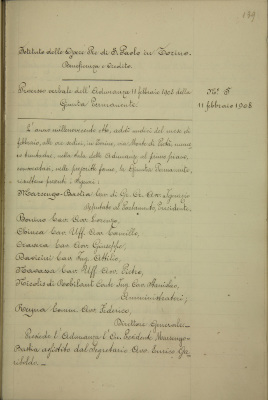 139.
Istituto delle Opere Pie di S. Paolo in Torino.
Beneficenza e Credito.
Processo verbale dell'Adunanza 11 febbraio 1908 della
Giunta Permanente.
N.° 5
11 febbraio 1908
L'anno millenovecento otto, addì undici del mese di
febbraio, alle ore sedici, in Torino, via Monte di Pietà, numero
trentadue, nella Sala delle Adunanze al primo piano,
convocatasi, nelle prescritte forme, la Giunta Permanente,
risultano presenti i Signori:
Marsengo-Bastia Cav. di Gr. Cr. Avv. Ignazio
Deputato al Parlamento, Presidente;
Bonino Cav. Avv. Lorenzo,
Cav. Uff. Avv. Camillo,
Cav. Avv. Giuseppe,
Cav. Ing. Attilio,
Cav. Uff. Avv. Pietro,
Nicolis di Robilant Conte Ing. Cav. Stanislao,
Amministratori;
Comm. Avv. Federico,
Direttore Generale.
Presiede l'Adunanza l'On. Presidente Marsengo-
Bastia assistito dal Segretario Avv. Enrico